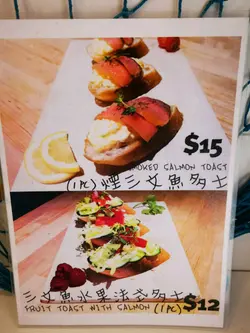 $15
SMOKED SALMON TOAST
(1pc) 煙三文魚多士
三文魚水果法式多士 $12
FRUIT TOAST WITH SALMON (1pc)